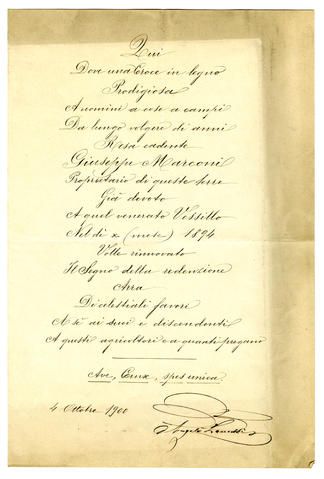 Qui
Dove una Croce in legno
Prodigiosa
A uomini a cose a campi
Da lungo volgere di anni
Resa cadente
Giuseppe Marconi
Proprietario di queste terre
Già devoto
A quel venerato Vessillo
Nel dì x (mese) 1894
Volle rinnovato
Il Segno della redenzione
Arra
Di celestiali favori
A sè ai suoi e discendenti
A questi agricoltori e a quanti pregano
Ave, Crux, spes unica.
4 Ottobre 1900
Angelo